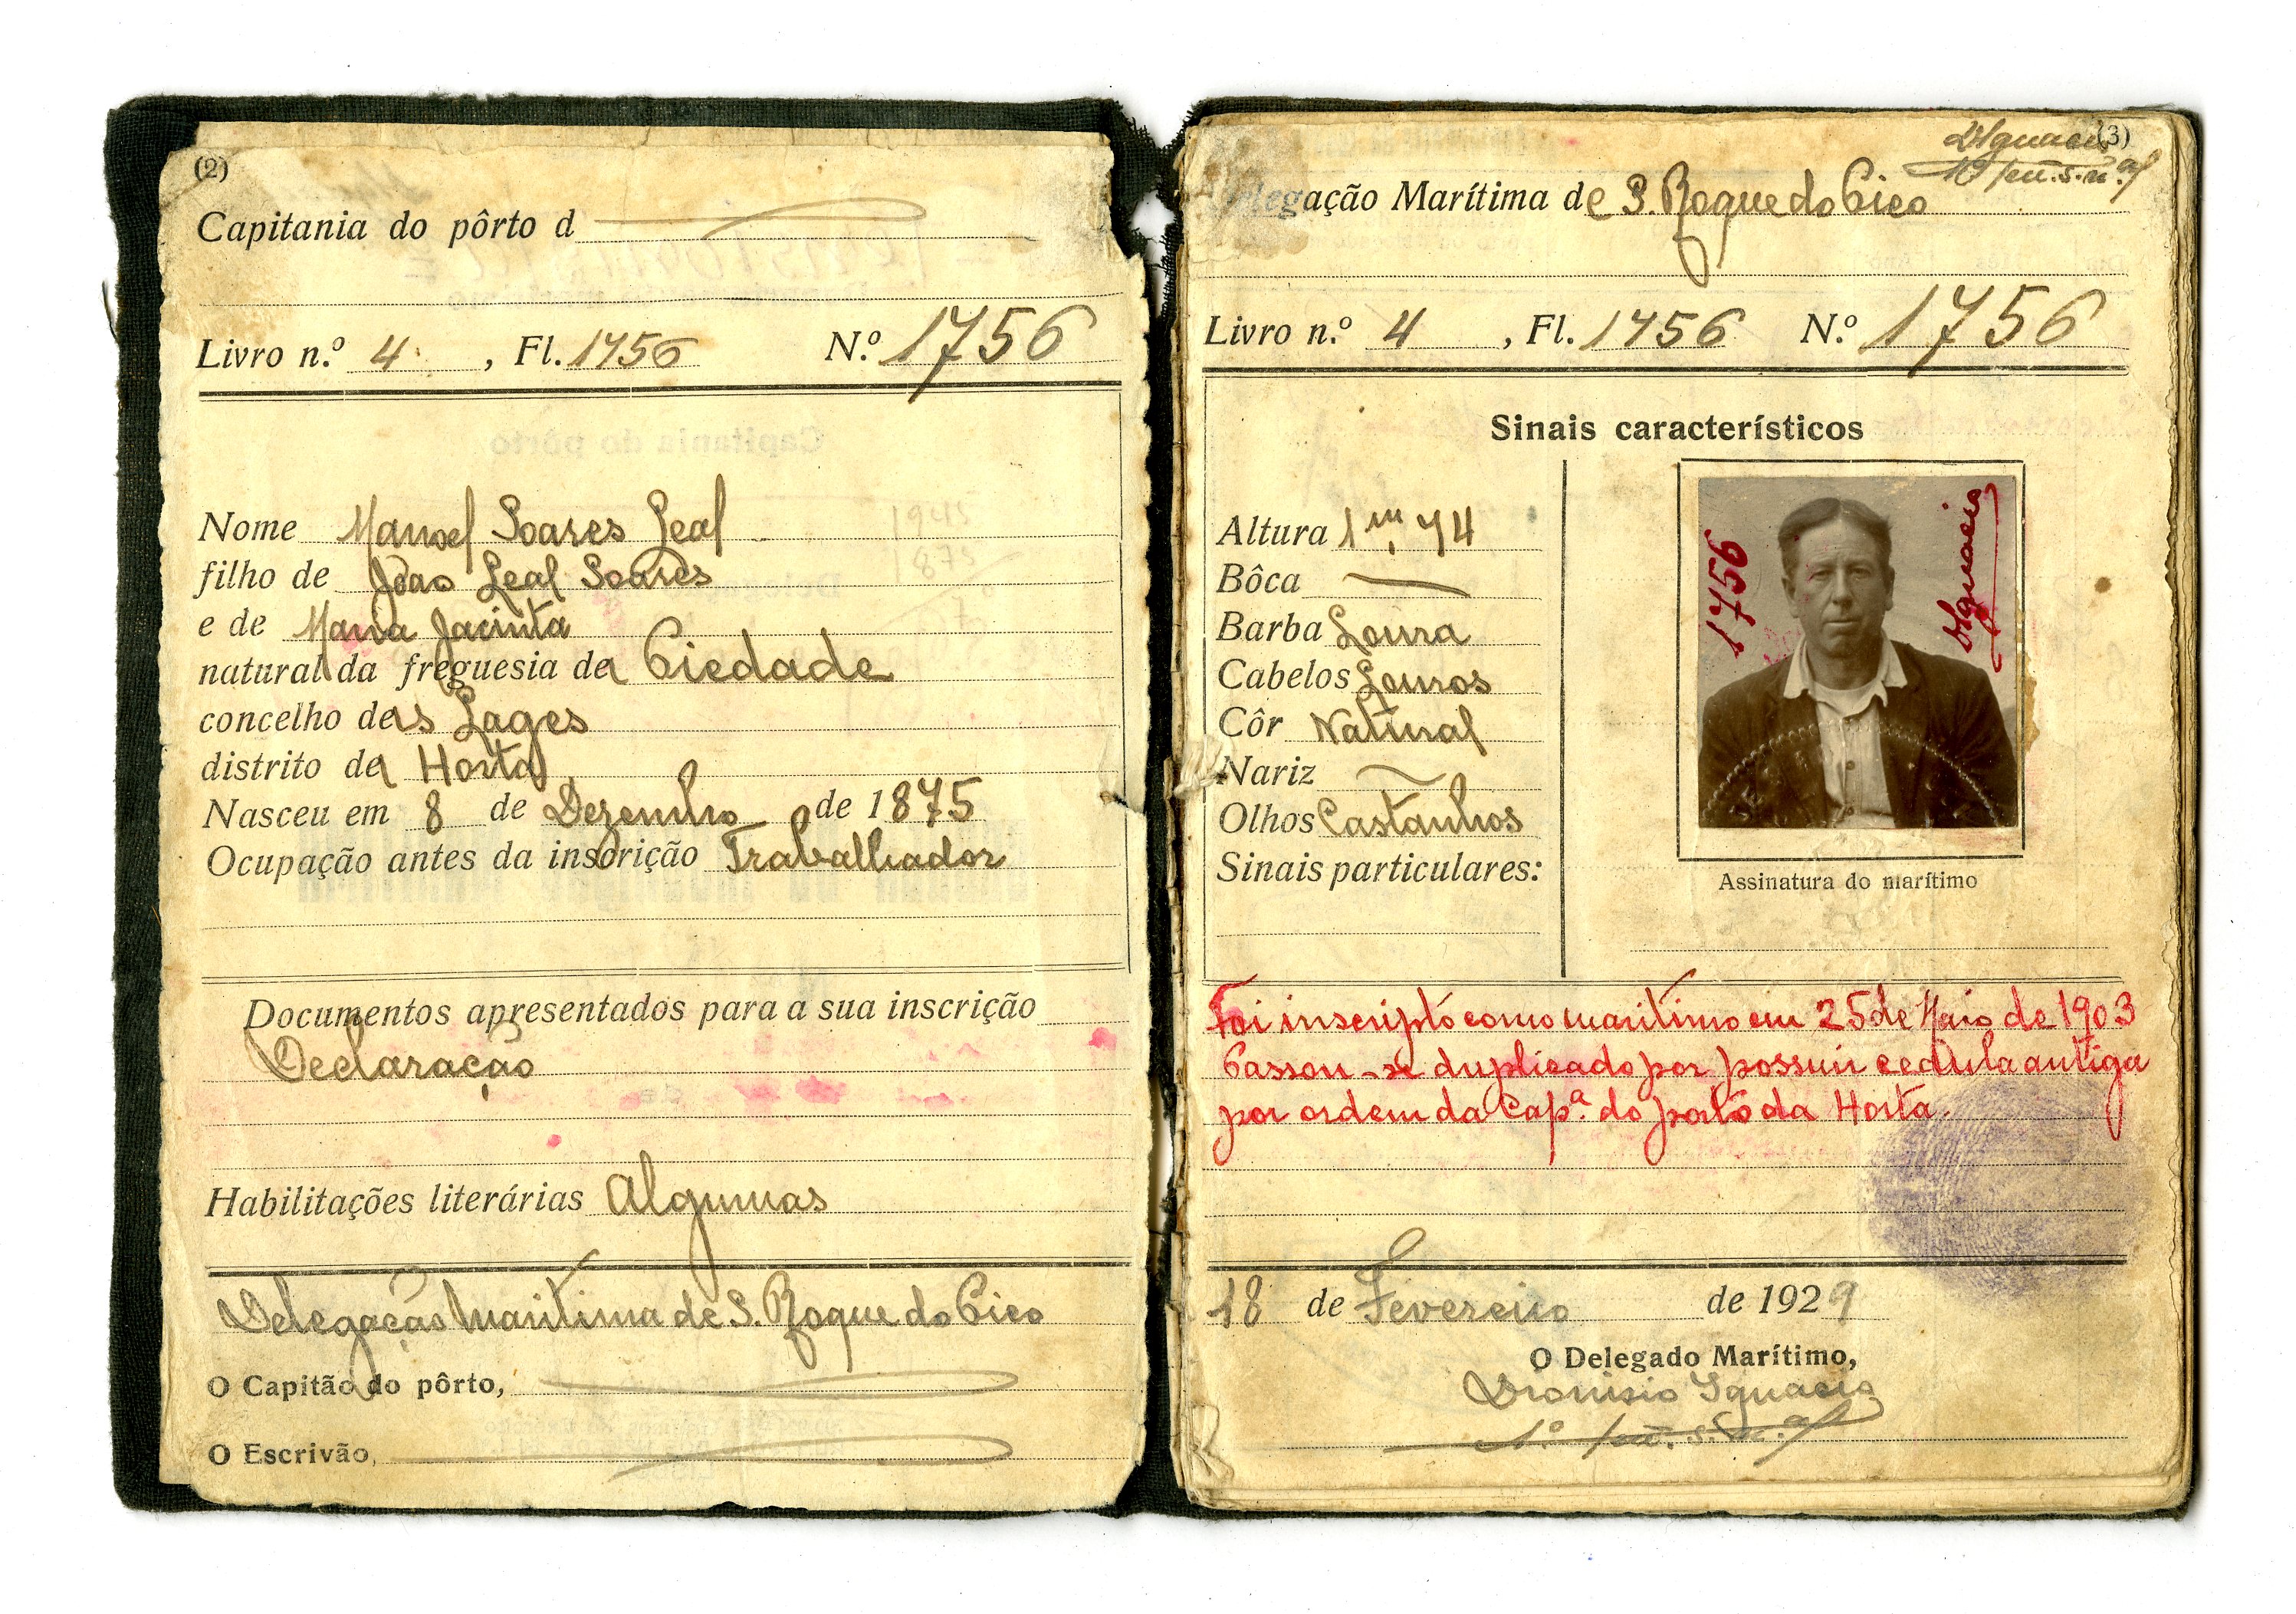 (2)
Capitania do pôrto d
Livro n.º 4, Fl. 1756 N.º 1756
Nome Manoel Soares Leal
filho de João Leal Soares
e de Maria Jacinta
natural da freguesia da Piedade
concelho das Lages
distrito da Horta
Nasceu em 8 de Dezembro de 1875
Ocupação antes da inscrição Trabalhador
1945
1875
70
Documentos apresentados para a sua inscrição
Declaração
Habilitações literárias Algumas
Delegação Marítima de S. Roque do Pico
O Capitão do pôrto,
O Escrivão,
(3)
DIgnacio
Delegação Marítima de S. Roque do Pico
Livro n.º 4, Fl. 1756 N.º 1756
Sinais característicos
Altura 1m,74
Bôca
Barba Loura
Cabelos Louros
Côr Natural
Nariz
Olhos Castanhos
Sinais particulares:
1756
DIgnacio
Assinatura do marítimo
Foi inscripto como maritimo em 25 de Maio de 1903
Passou-se duplicado por possuir cedula antiga
por ordem da Capª. do porto da Horta.
18 de Fevereiro de 1929
O Delegado Marítimo,
Dionisio Ignacio